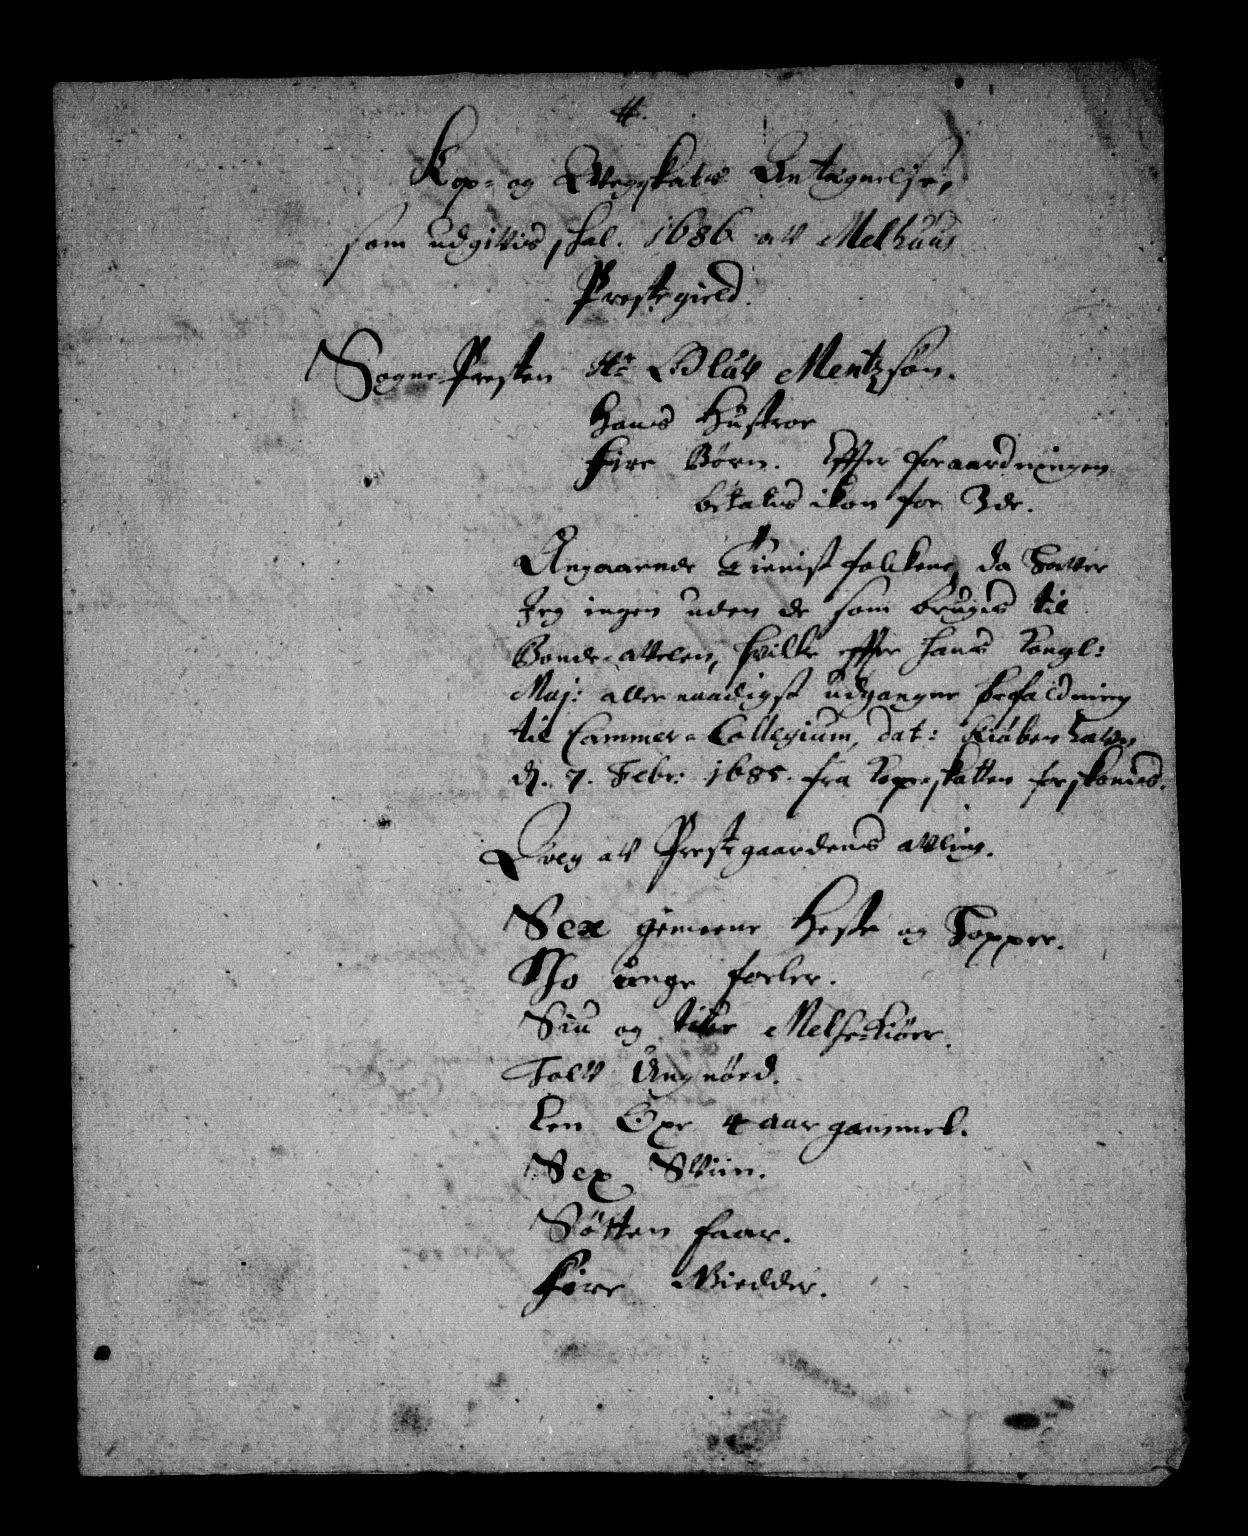 Kop- og Qvegskatts Antegnelse,
som udgivis skal. 1686 aff Melhuus
Prestegield.
Sogne Presten Hr Oluff Mentzsøn.
Hans Hustroe
Fire Børn. Effter foraardningen
betalis ikon for 3de.
Angaarende Tienist folckene, da haver
Jeg ingen uden de som brugis til
Bonde-avelen, hvilke effter hans Kongl:
Maj: aller naadigst udgangne befaldning
til Cammer-Collegium, dat: Kiøbenhavn
d. 7. Febr: 1685. fra Kopeskatten forskonis.
Qveg aff Prestgaardens avling.
Sex gemeene Heste og Hopper.
To unge foeler.
Siu og tive Melke-Kiøer.
Tolv Ungnød.
Een Oxe 4 aar gammel.
Sex Sviin.
Søtten faar.
Fire Giedder.